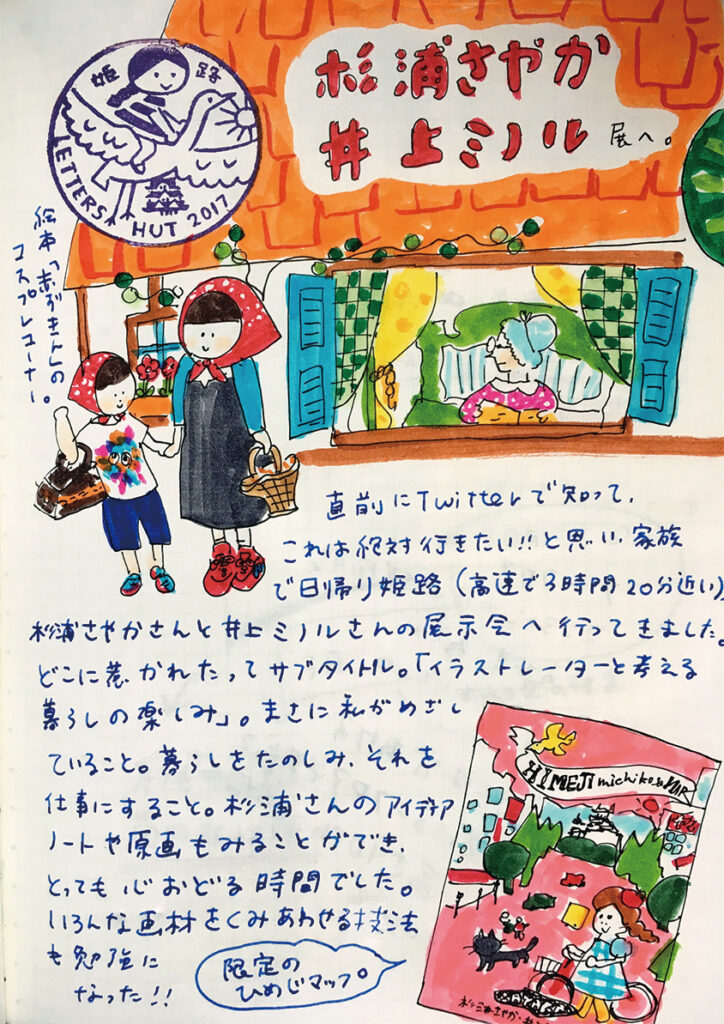 杉浦さやか
井上ミノル 展へ。
姫路
LETTERS HUT 2017
絵本「赤ずきん」の
コスプレコーナー。
直前にTwitterで知って、
これは絶対行きたい!!と思い、家族
で日帰り姫路(高速で3時間20分近い)
杉浦さやかさんと井上ミノルさんの展示会へ行ってきました。
どこに惹かれたってサブタイトル。「イラストレーターと考える
暮らしの楽しみ」。まさに私がめざし
ていること。暮らしをたのしみ、それを
仕事にすること。杉浦さんのアイディア
ノートや原画もみることができ、
とっても心おどる時間でした。
いろんな画材をくみあわせる技法
も勉強に
なった!!
限定の
ひめじマップ。
HIMEJI michikusa MAP
杉浦さやか